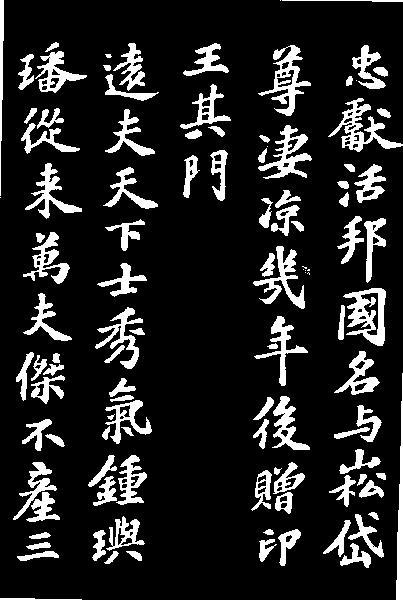 忠獻活邦國名与崧岱
尊凄凉幾年後贈印
王其門
遠夫天下士秀氣鍾璵
璠從来萬夫傑不產三